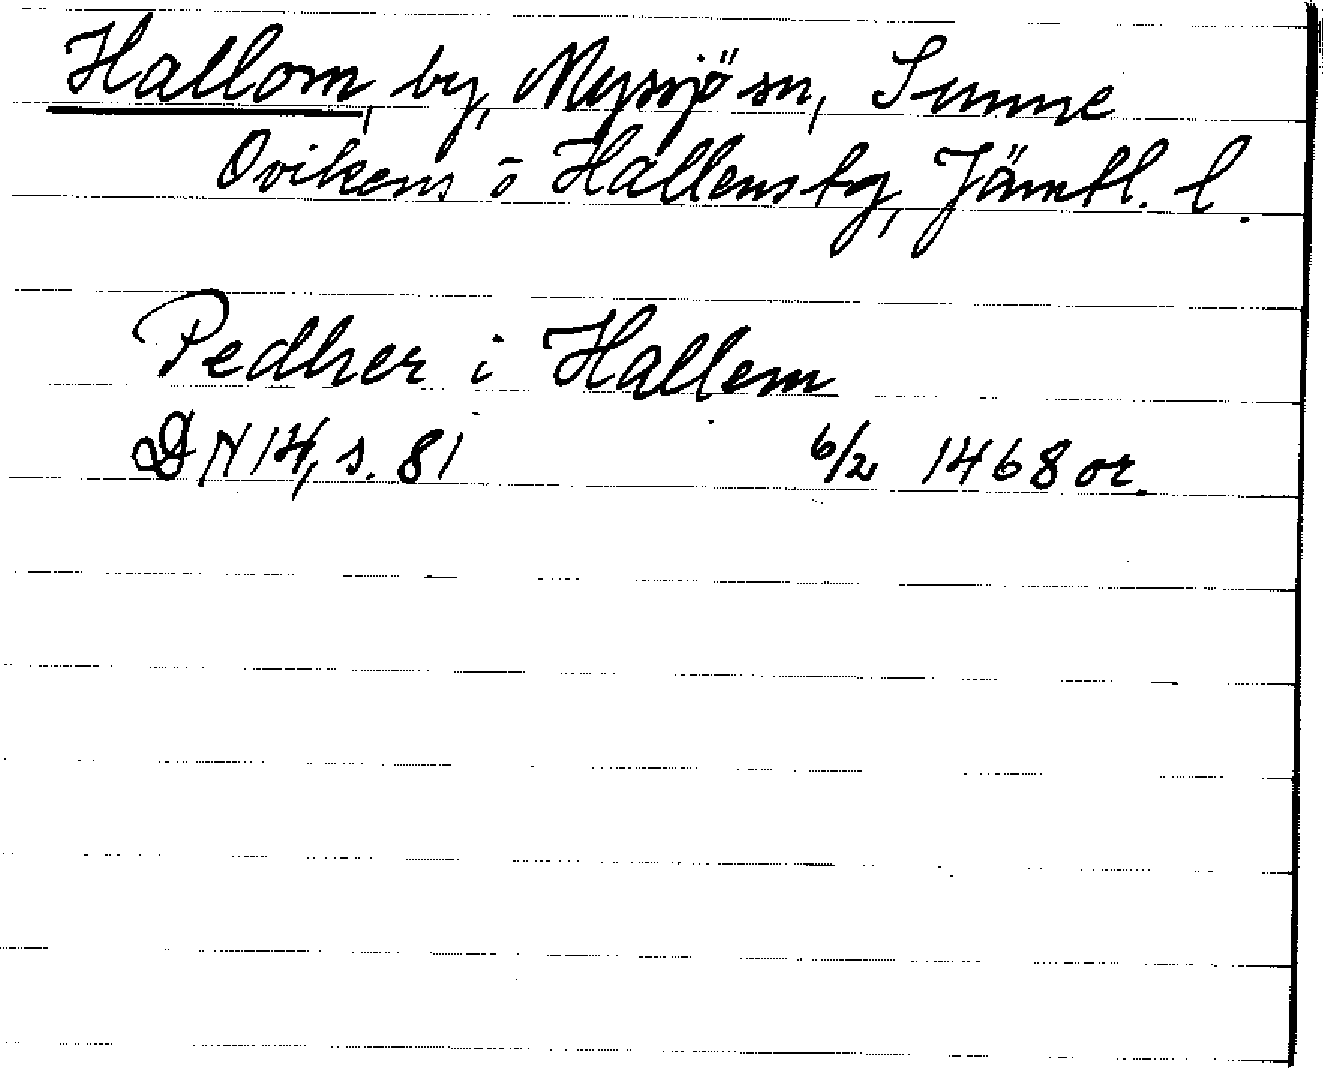 Hallom, by, Myssjö sn, Sunne
Ovikens o Hallens tg, Jämtl. l.
Pedher i Hallem
DN 14, s. 81 6/2 1468 or.